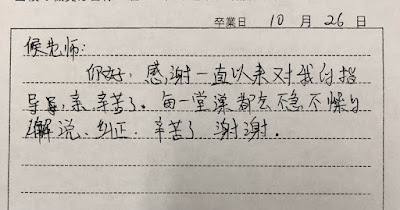 卒業日 10 月 26 日
候老师:
你好, 感谢一直以来对我的指
导,亲,辛苦了。每一堂课都么不急不燥的
解说、纠正. 辛苦了 谢谢.